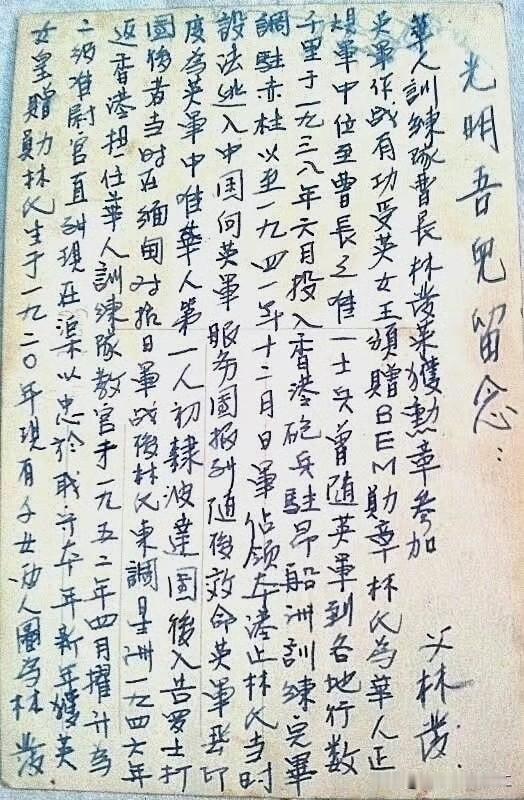 光明吾兒留念：
父林發
華人訓練隊曹長林發榮獲勳章參加
英軍作战有功受英女王頒贈BEM勛章林氏為華人正
規軍中位至曹長之唯一士兵曾随英軍到各地行数
千里于一九三八年六月投入香港砲兵駐昂船洲訓練完畢
調駐赤柱以至一九四一年十二月日軍佔領本港止林氏当时
設法逃入中国向英軍服务團报到随後效命英軍印
度為英軍中唯華人第一人初隸波達團後入告罗士打
團後者当时在緬甸对抗日軍战後林氏東調星洲一九四六年
返香港担任華人訓練隊教官于一九五二年四月擢升為
二級准尉官直到現在渠以忠於职守本年新年獲英
女皇贈勛林氏生于一九二0年現有子女人圖為林發